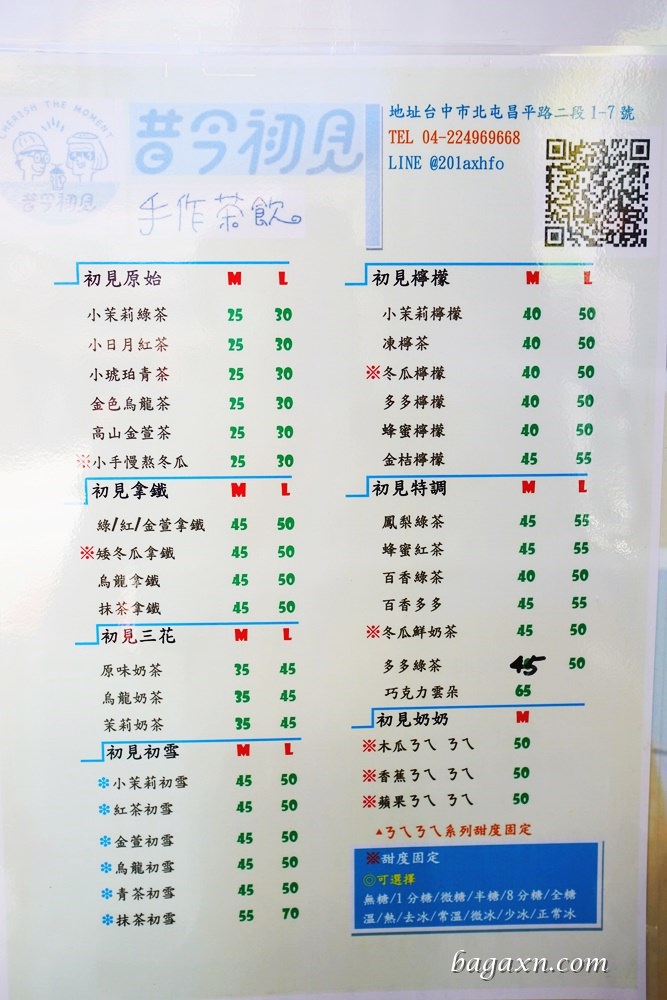 CHERISH THE MOMENT
昔今初見
昔今初見
手作茶飲。
地址台中市北屯昌平路二段1-7號
TEL 04-224969668
LINE @201axhfo
初見原始 M L
小茉莉綠茶 25 30
小日月紅茶 25 30
小琥珀青茶 25 30
金色烏龍茶 25 30
高山金萱茶 25 30
※小手慢熬冬瓜 25 30
初見拿鐵 M L
綠/紅/金萱拿鐵 45 50
※矮冬瓜拿鐵 45 50
烏龍拿鐵 45 50
抹茶拿鐵 45 50
初見三花 M L
原味奶茶 35 45
烏龍奶茶 35 45
茉莉奶茶 35 45
初見初雪 M L
❄小茉莉初雪 45 50
❄紅茶初雪 45 50
❄金萱初雪 45 50
❄烏龍初雪 45 50
❄青茶初雪 45 50
❄抹茶初雪 55 70
初見檸檬 M L
小茉莉檸檬 40 50
凍檸茶 40 50
※冬瓜檸檬 40 50
多多檸檬 40 50
蜂蜜檸檬 40 50
金桔檸檬 45 55
初見特調 M L
鳳梨綠茶 45 55
蜂蜜紅茶 45 55
百香綠茶 40 50
百香多多 45 55
※冬瓜鮮奶茶 45 50
多多綠茶 45 50
巧克力雲朵 65
初見奶奶 M
※木瓜ㄋㄟ ㄋㄟ 50
※香蕉ㄋㄟ ㄋㄟ 50
※蘋果ㄋㄟ ㄋㄟ 50
▲ㄋㄟㄋㄟ系列甜度固定
※甜度固定
◎可選擇
無糖/1分糖/微糖/半糖/8分糖/全糖
溫/熱/去冰/常溫/微冰/少冰/正常冰
bagaxn.com